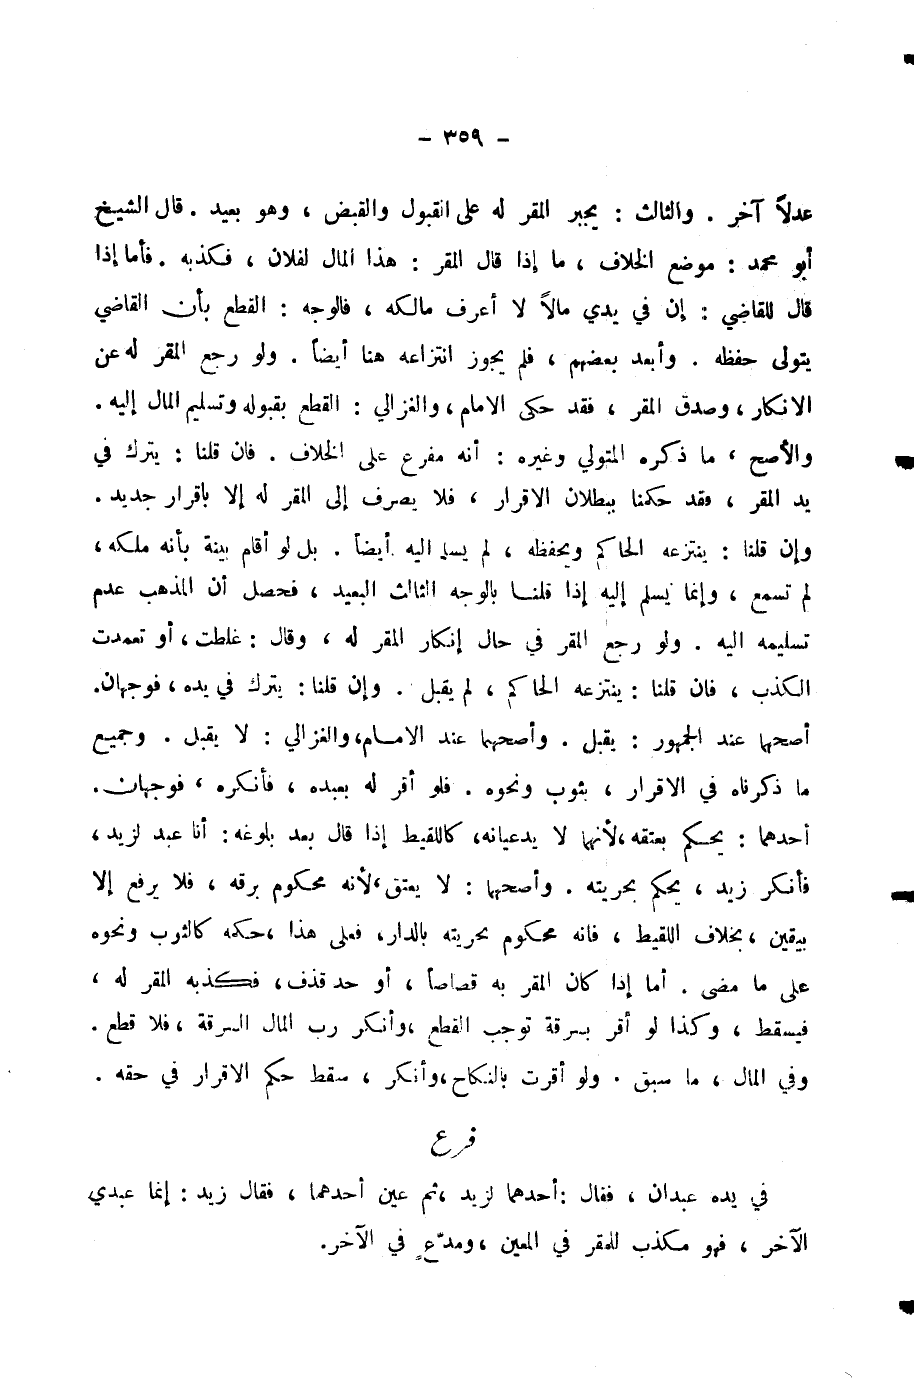 - ٣٥٩ -
عدلاً آخر . والثالث : يجبر المقر له على القبول والقبض ، وهو بعيد . قال الشيخ
أبو محمد : موضع الخلاف ، ما إذا قال المقر : هذا المال لفلان ، فكذبه . فأما إذا
قال للقاضي : إن في يدي مالاً لا أعرف مالكه ، فالوجه : القطع بأن القاضي
يتولى حفظه . وأبعد بعضهم ، فلم يجوز انتزاعه هنا أيضاً . ولو رجع المقر له عن
الانكار ، وصدق المقر ، فقد حكى الامام ، والغزالي : القطع بقبوله وتسليم المال إليه .
والأصح ، ما ذكره المتولي وغيره : أنه مفرع على الخلاف . فان قلنا : يترك في
يد المقر ، فقد حكمنا ببطلان الاقرار ، فلا يصرف إلى المقر له إلا باقرار جديد .
وإن قلنا : ينتزعه الحاكم ويحفظه ، لم يسلم اليه أيضاً . بل لو أقام بينة بأنه ملكه ،
لم تسمع ، وإنما يسلم إليه إذا قلنا بالوجه الثالث البعيد ، فحصل أن المذهب عدم
تسليمه اليه . ولو رجع المقر في حال إنكار المقر له ، وقال : غلطت ، أو تعمدت
الكذب ، فان قلنا : ينتزعه الحاكم ، لم يقبل . وإن قلنا : يترك في يده ، فوجهان .
أصحها عند الجمهور : يقبل . وأصحهما عند الامام ، والغزالي : لا يقبل . وجميع
ما ذكرناه في الاقرار ، بثوب ونحوه . فلو أقر له بعبده ، فأنكره ، فوجهان .
أحدهما : يحكم بعتقه ، لأنهما لا يدعيانه ، كاللقيط إذا قال بعد بلوغه : أنا عبد لزيد ،
فأنكر زيد ، يحكم بحريته . وأصحهما : لا يعتق ، لأنه محكوم برقه ، فلا يرفع إلا
بيقين ، بخلاف اللقيط ، فانه محكوم بحريته بالدار ، فعلى هذا ، حكمه كالثوب ونحوه
على ما مضى . أما إذا كان المقر به قصاصاً ، أو حد قذف ، فكذبه المقر له ،
فيسقط ، وكذا لو أقر بسرقة توجب القطع ، وأنكر رب المال السرقة ، فلا قطع .
وفي المال ، ما سبق . ولو أقرت بالنكاح ، وأنكر ، سقط حكم الاقرار في حقه .
فرع
في يده عبدان ، فقال : أحدهما لزيد ، ثم عين أحدهما ، فقال زيد : إنما عبدي
الآخر ، فهو مكذب للمقر في المعين ، ومدّعٍ في الآخر .